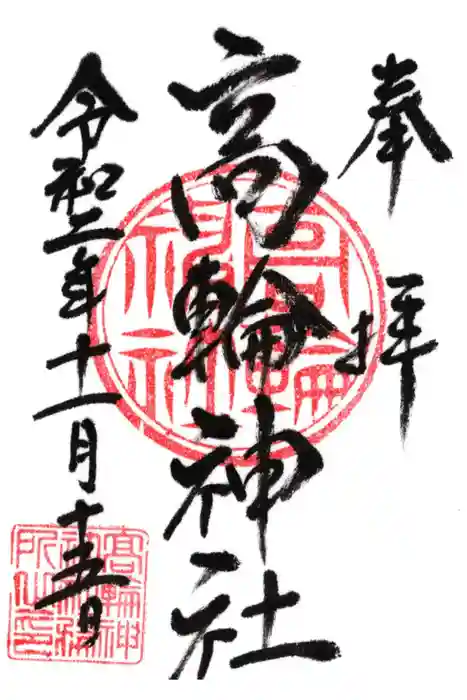 奉拝
高輪神社
令和二年十一月十五日
高輪神社
高輪神社社務所之印